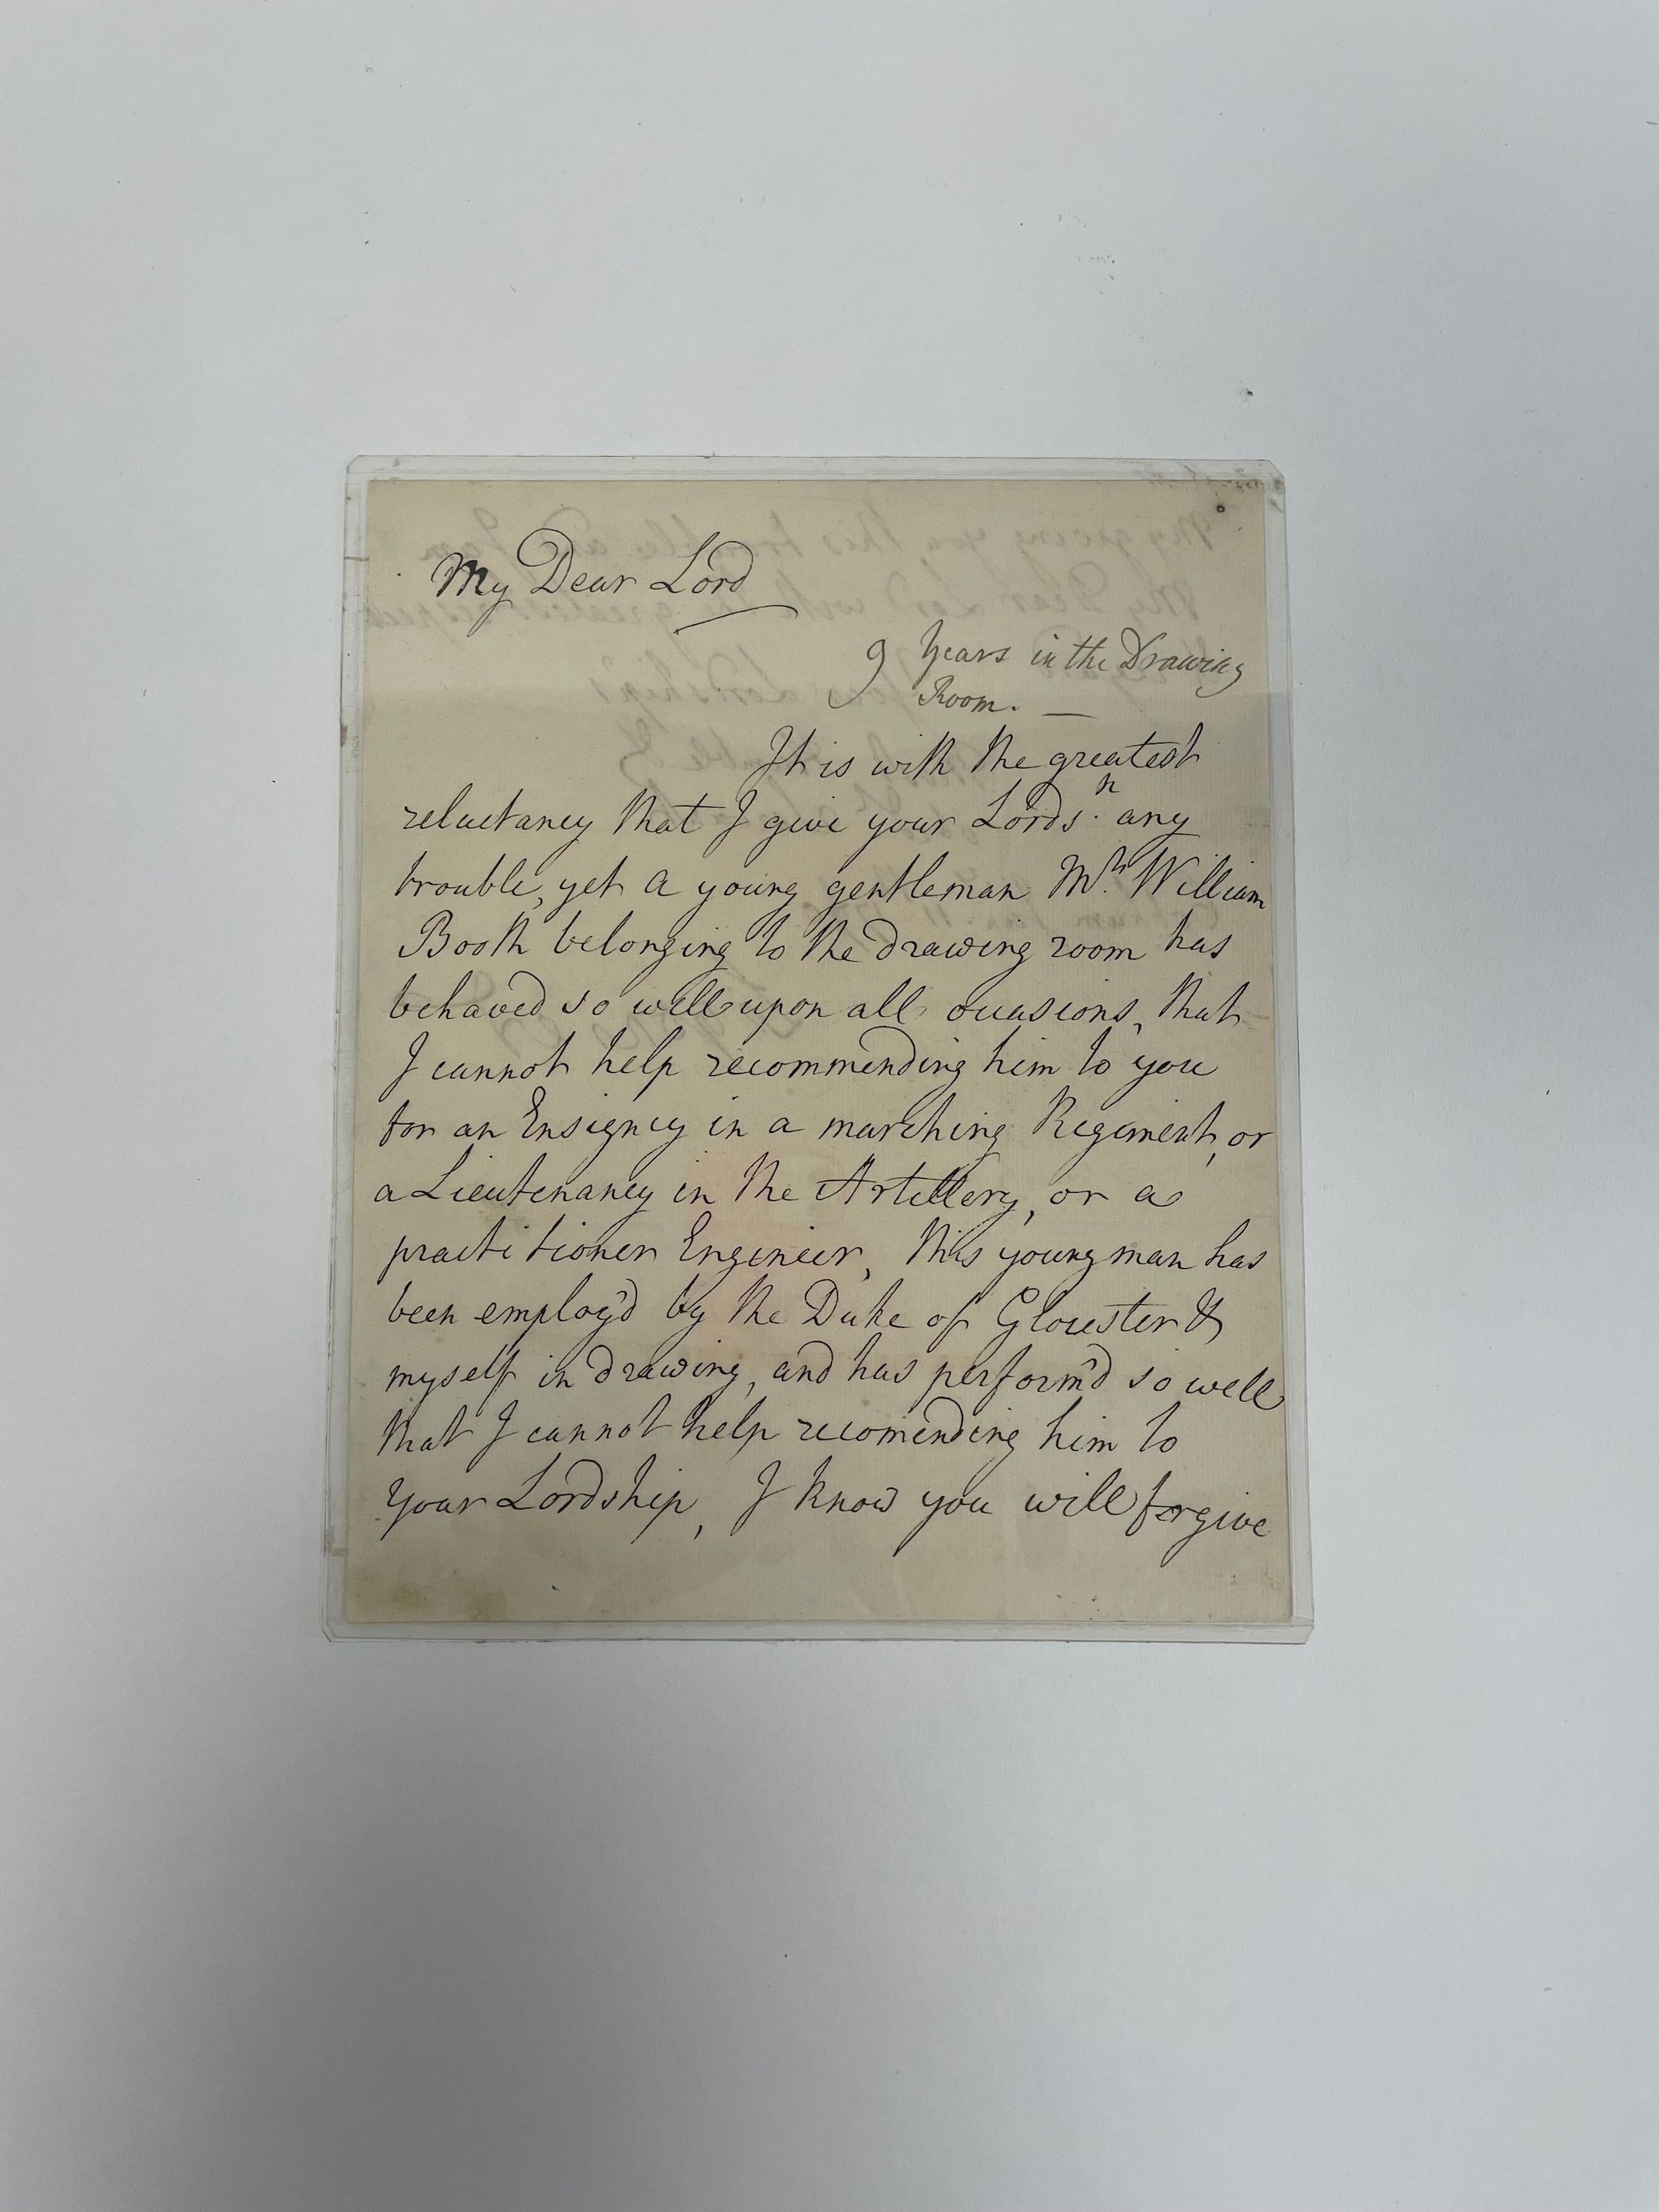 My Dear Lord
9 Years in the Drawing
Room. —
It is with the greatest
reluctancy that I give your Lords.p any
trouble, yet a young gentleman Mr. William
Booth belonging to the drawing room has
behaved so well upon all occasions, that
I cannot help recommending him to you
for an Ensigncy in a marching Regiment, or
a Lieutenancy in the Artillery, or a
practitioner Engineer, this young man has
been employ'd by the Duke of Gloucester &
myself in drawing, and has perform'd so well
that I cannot help recomending him to
your Lordship, I know you will forgive